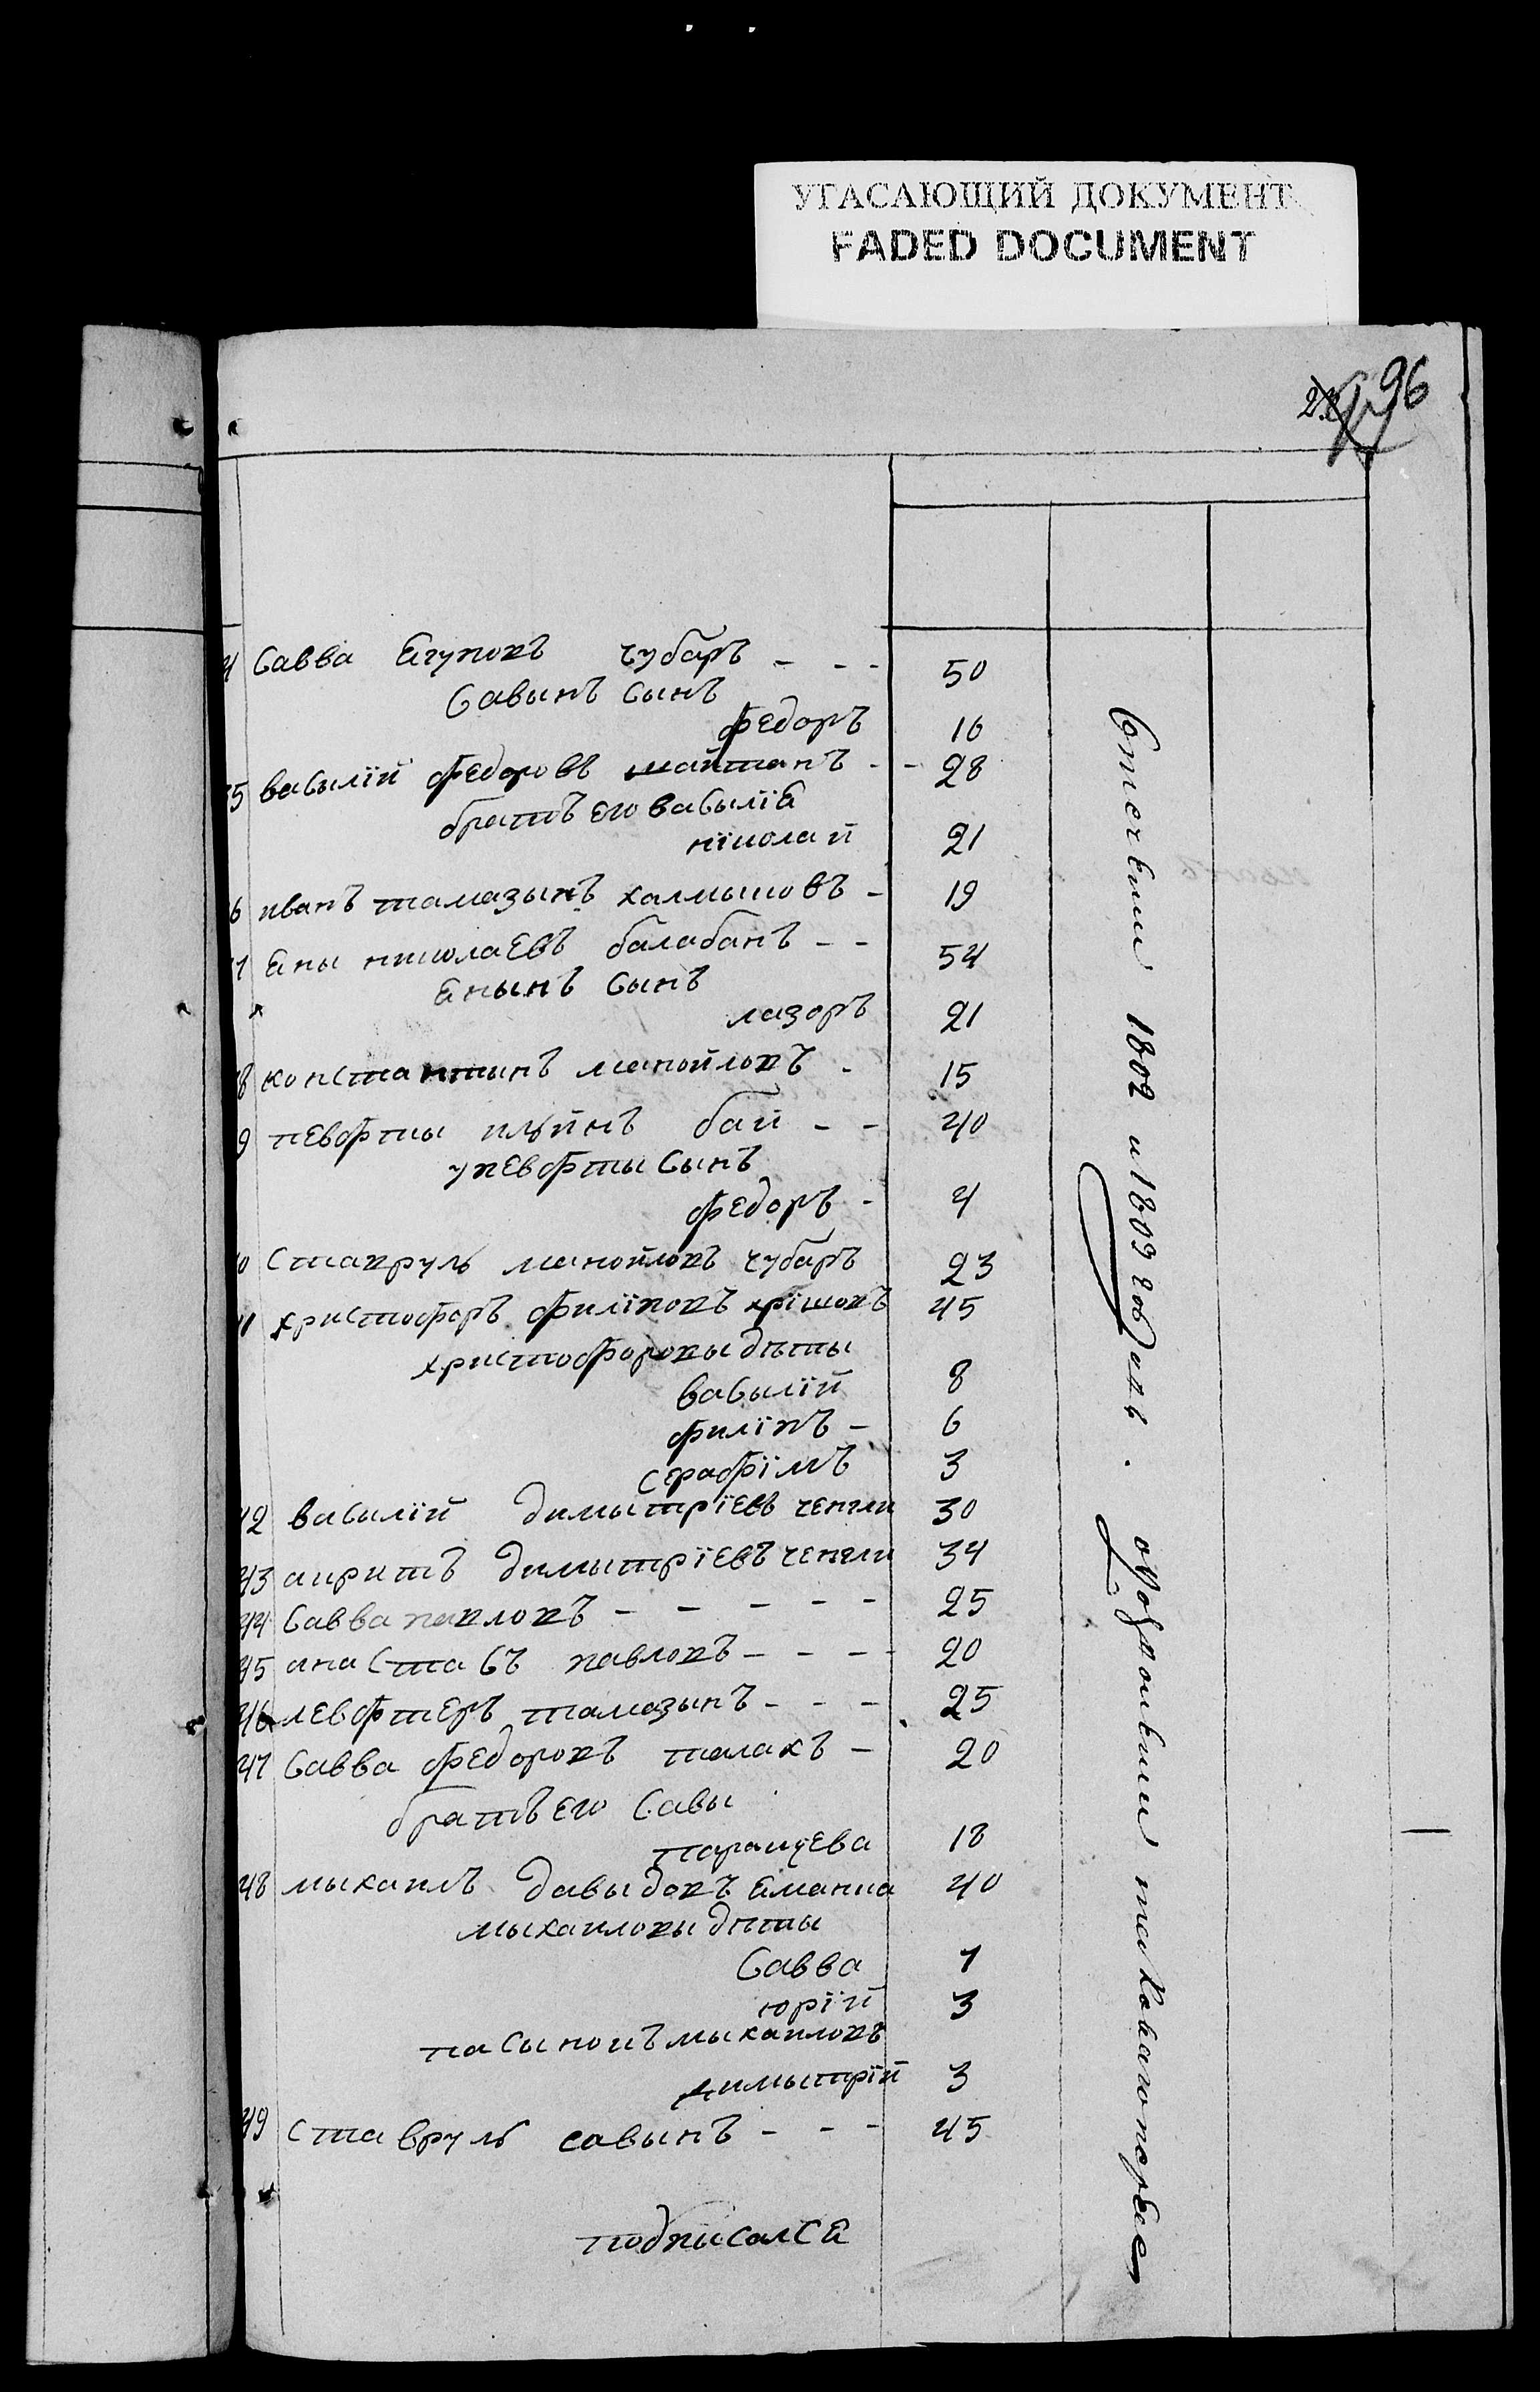 УГАСАЮЩИЙ ДОКУМЕНТ
FADED DOCUMENT
96
4 Савва Егуповъ чубаръ - - - 50
Савынъ Сынъ
федоръ 16
35 васылїй федоровъ шайтанъ - - 28
братъ его васылїа
нїколай 21
6 иванъ тамазынъ калмыковъ - 19
7 Ены николаевъ балабанъ - - 54
Енынъ Сынъ
лазоръ 21
8 константынъ манойловъ - 15
9 певфты ильинъ бай - - 40
упевфты Сынъ
федоръ - 4
0 Ставруль манойловъ чубаръ 23
41 христофоръ филїповъ хрїшовъ 45
христофоровы дѣты
васылїй 8
филїпъ - 6
серафїмъ 3
42 василїй димытрїевъ ченгли 30
43 киритъ димытрїевъ ченгли 34
44 Савва павловъ - - - - - 25
45 анастасъ павловъ - - - - 20
46 левфтеръ тамазынъ - - - 25
47 Савва федоровъ палахъ - 20
братъ его Савы
парацева 18
48 мыхаилъ давыдовъ Еманка 40
мыхаиловы дѣты
Савва 7
юрїй 3
пасынокъ мыхаиловъ
димытрїй 3
49 ставруль савынъ - - - 45
подписалсе
1802 и 1803 годахъ.